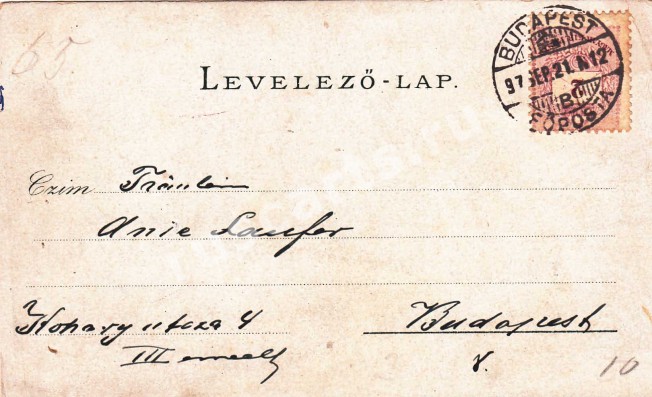 65
BUDAPEST
97 SEP. 21. 12
FŐPOSTA
LEVELEZŐ-LAP.
Czim Fräulein
Anie Laufer
Kohary utcza 4
Budapest
III emelet
V.
10